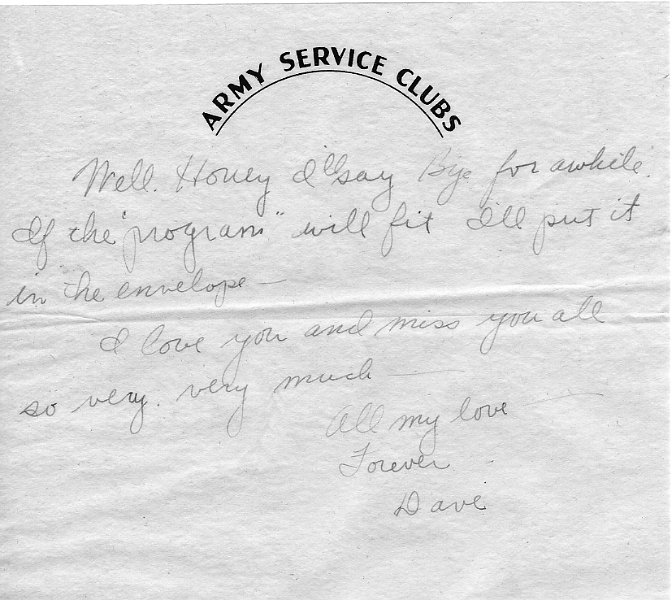 ARMY SERVICE CLUBS
Well. Honey I'll say Bye for awhile.
If the "program" will fit I'll put it
in the envelope —
I love you and miss you all
so very, very much —
All my love —
Forever
Dave